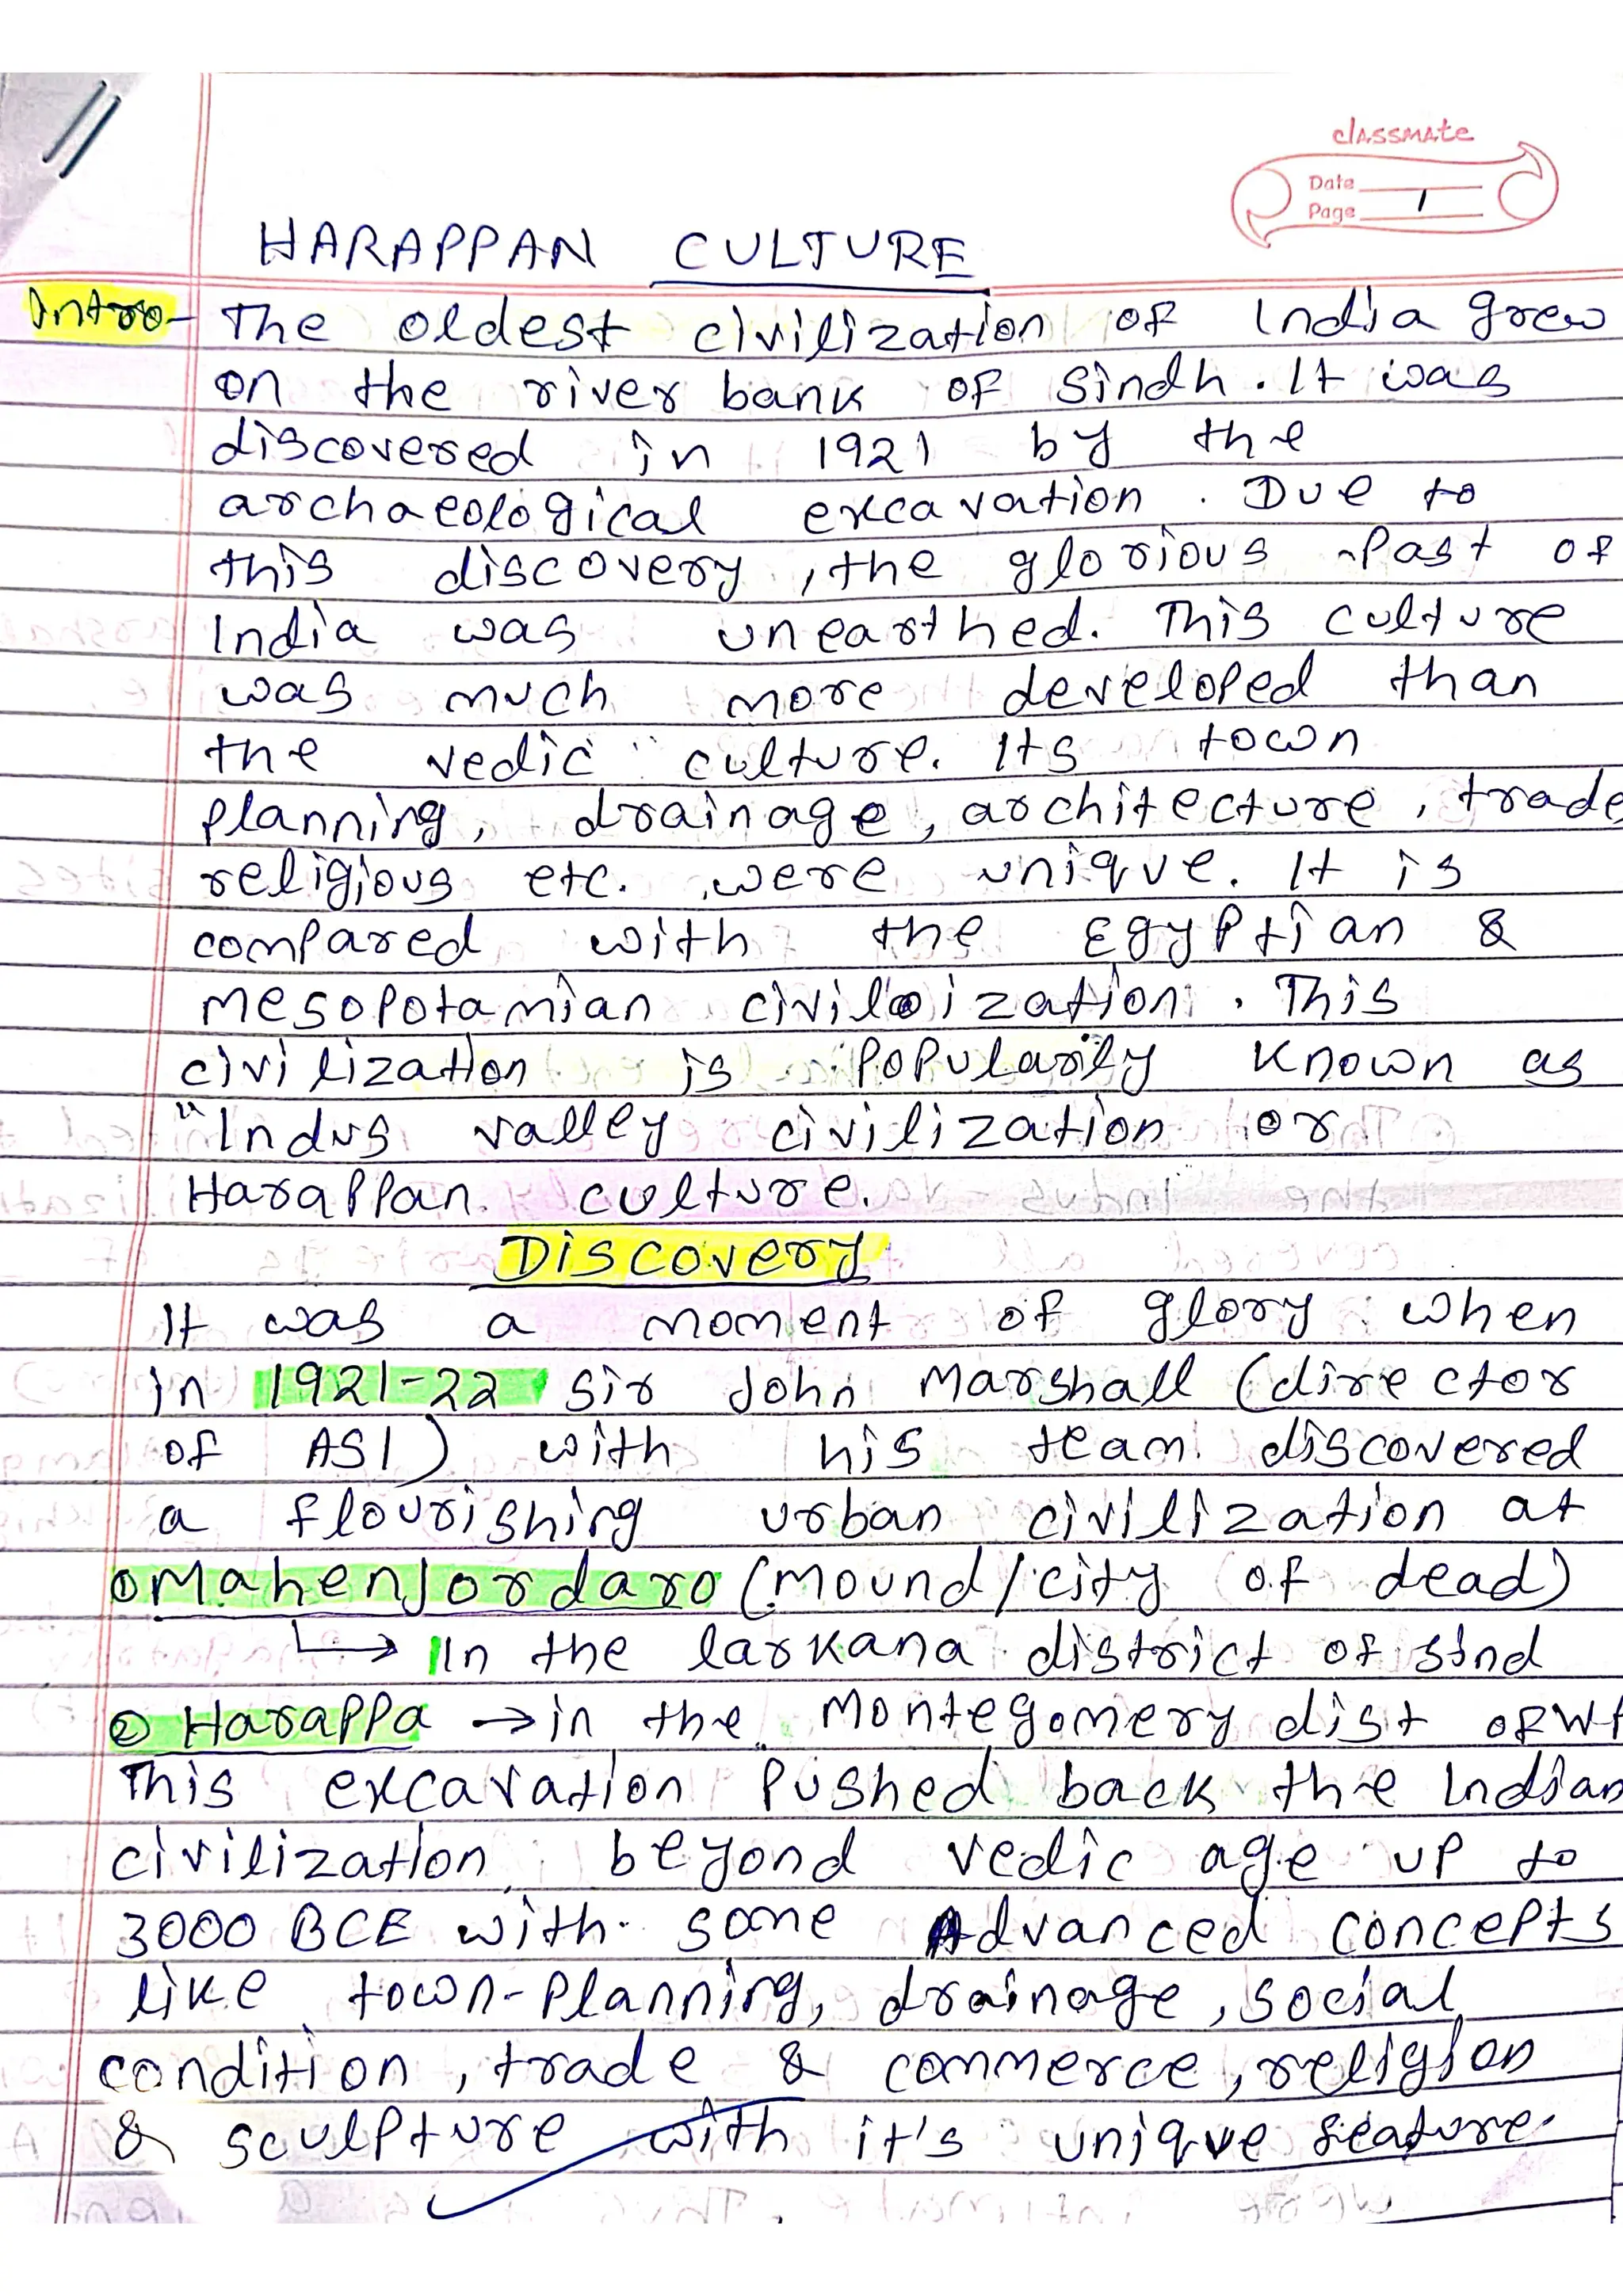 classmate
Date
Page 1
HARAPPAN CULTURE
Intro- The oldest civilization of India grew
on the river bank of Sindh. It was
discovered in 1921 by the
archaeological excavation. Due to
this discovery, the glorious past of
India was unearthed. This culture
was much more developed than
the vedic culture. Its town
planning, drainage, architecture, trade
religious etc. were unique. It is
compared with the Egyptian &
Mesopotamian civilization. This
civilization is popularily known as
"Indus valley civilization or
Harappan culture.
Discovery
It was a moment of glory when
in 1921-22 Sir John Marshall (director
of ASI) with his team discovered
a flourishing urban civilization at
① Mahenjordaro (Mound/city of dead)
↳ In the larkana district of sind
② Harappa → in the Montegomery dist of
This excavation pushed back the Indian
civilization beyond vedic age up to
3000 BCE with some Advanced concepts
like town-planning, drainage, social
condition, trade & commerce, religion
& sculpture with it's unique feature.